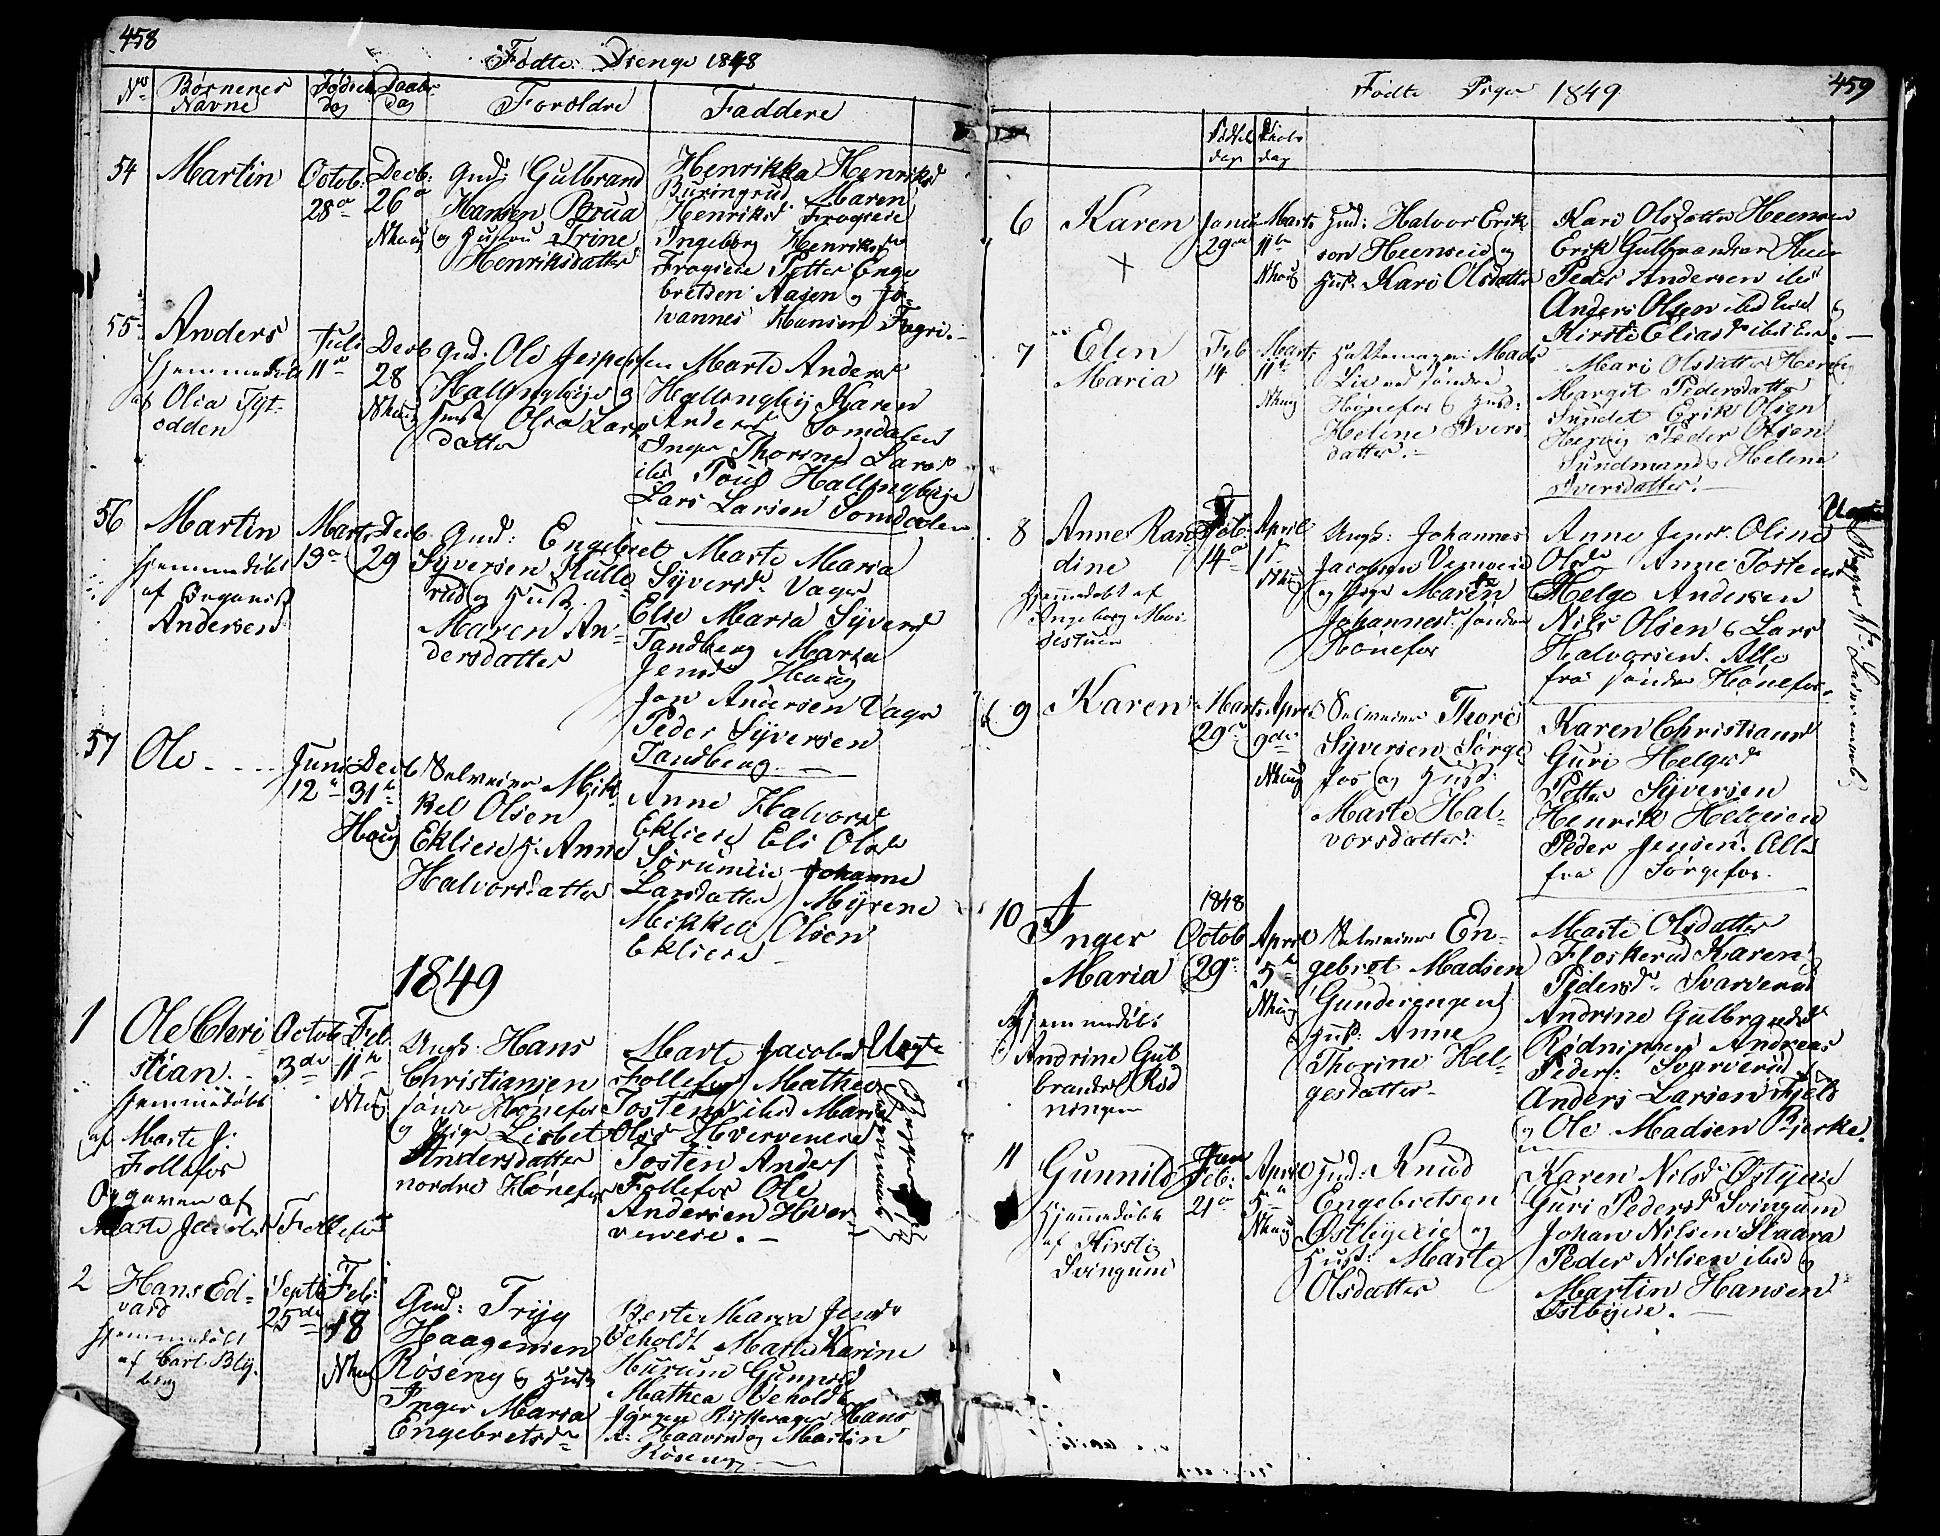 458
Fødte Drenge 1848
No Børnenes Navne Fødsels Dag Daabs Dag Foroldre Faddere
54 Martin
Octob: 28de
Decb. 26de
Nhaug
Gmd: Gulbrand
Hansen Brua
og Hustru Trine
Henriksdatter
Henrikka Henriksd
Buringrud Maren
Henriksd Frogseie
Ingeborg Henriksd
Frogseie Petter Enge
bretsen Aasen og Jo-
hannes Hansen Fegri.-
55 Anders
Hjemmedøbt
af Olia Tyt-
odden
Juli 11te
Decb. 28
Nhaug
Gmd. Ole Jespers
Hallingbye og
Hust Olea Lars
datter
Marte Anders
Hallingby Karen
Anders Somdalen
Inger Thorine Lars
ibd Poul Hallingbye
Lars Larsen Somdalen
56 Martin
Hjemmedøbt
af Organist
Andersen
Marts 19de
Decb. 29
Gmd: Engebret
Syversen Kulle
rud og Hust.
Maren An-
dersdatter
Marte Maria
Syversd Vager
Else Maria Syvers
Tandberg Maria
Jensd Haug
Jon Andersen Vager
Peder Syversen
Tandberg.
57 Ole
Juni 12te
Decb 31te
Haug
Selveier Mik
kel Olsen
Eklieie H: Anne
Halvorsdatter
Anne Halvorsd
Eklieie Eli Olsd
Sørumeie Johanne
Larsdatter Myrene
Mikkel Olsen
Eklieie
1849
1 Ole Chri
stian.
Hjemmedøbt
af Marte J.
Follefos
Opgaven af
Marte Jacobsd Follefos
Octob 3de
Feb 11te
Nhg
Ungk. Hans
Christiansen
søndre Hønefos
og Pige Lisbet
Andersdatter
nordre Hønefos
Marte Jacobsd
Follefos Mathea
Tostensd ibd Maria
Olsd Hverveneie
Tosten Anders
Follefos Ole
Andersen Hver-
veneie.-
Uægte
2 Hans Ed-
vard
Hjemmedøbt
af Carl Bly
berg
Septb 25de
Feb: 18
Nhaug
Gmd: Tryg
Haagensen
Røseng og Hust
Inger Maria
Engebretsd
Berte Maria Jensd
Oeholdt Marte Karine
Hurum Gunnild
Mathea Oeholdt
Jørgen Rytterager Hans
Haavind og Martin
Røseng
459
Fødte Piger 1849
Fødsels dag Daabs dag
6 Karen
Januar 29de
Marts 11te
Nhaug
Gmd: Halvor Erik
sen Heenseie og
Hust. Kari Olsdatter
Kari Olsdatter Heenseie
Erik Gulbrandsen Heen
Peder Andersen ibd
Anders Olsen ibd Eied og
Kirsti Eliasd ibd Eie.-
7 Elen
Maria
Feb 14
Marts 11te
Nhaug
Hattemager Mads
Lie ved søndre
Hønefos og Hust:
Helene Ivers
datter.-
Mari Olsdatter Hervig
Margit Pedersdatter
Sundet Erik Olsen
Hervig Peder Olsen
Sundmand og Helene
Iversdatter.-
8 Anne Ran
dine
Hjemmedøbt af
Ingeborg Mos-
sestuen
Feb: 14de
April 1te
Nhaug
Ungk: Johannes
Jacobsen Vemeeie
og Pige Maren
Johannesd søndre
Hønefos
Anne Jensd. Oline
Olsd Anne Tostens
Helge Andersen
Nils Olsen og Lars
Halvorsen. Alle
fra søndre Hønefos.
Uægte
9 Karen
Marts 29de
April 9de
Nhaug
Selveier Thore
Syversen Sørge
fos og Hust:
Marte Hal-
vorsdatter.
Karen Christiansd
Guri Helgesd
Petter Syversen
Henrik Helgesen
Peder Jensen. Alle
fra Sørgefos.
10 Inger
Maria
Hjemmedøbt
af Andrine Gul
brandsd Rød
ningen
1848
Octob 29de
April 5te
Nhaug
Selveier En-
gebret Madsen
Gunderengen
Hust. Anne
Thorine Hel-
gesdatter.
Marte Olsdatter
Floskerud Karen
Pedersd Svarverud
Andrine Gulbrandsd
Rødningen Andreas
Peders: Svarverud
Anders Larsen Fjeld
og Ole Madsen Bjerke.
11 Gunnild
Hjemmedøbt
af Kirstig
Svingum
Feb: 21de
April 5te
Nhaug
Gmd: Knud
Engebretsen
Østbyeeie og
Hust: Marte
Olsdatter
Karen Nilsd Østbyeie
Guri Pedersd Svingum
Johan Nilsen Slaara
Peder Nilsen ibid og
Martin Hansen
Østbyeie.-